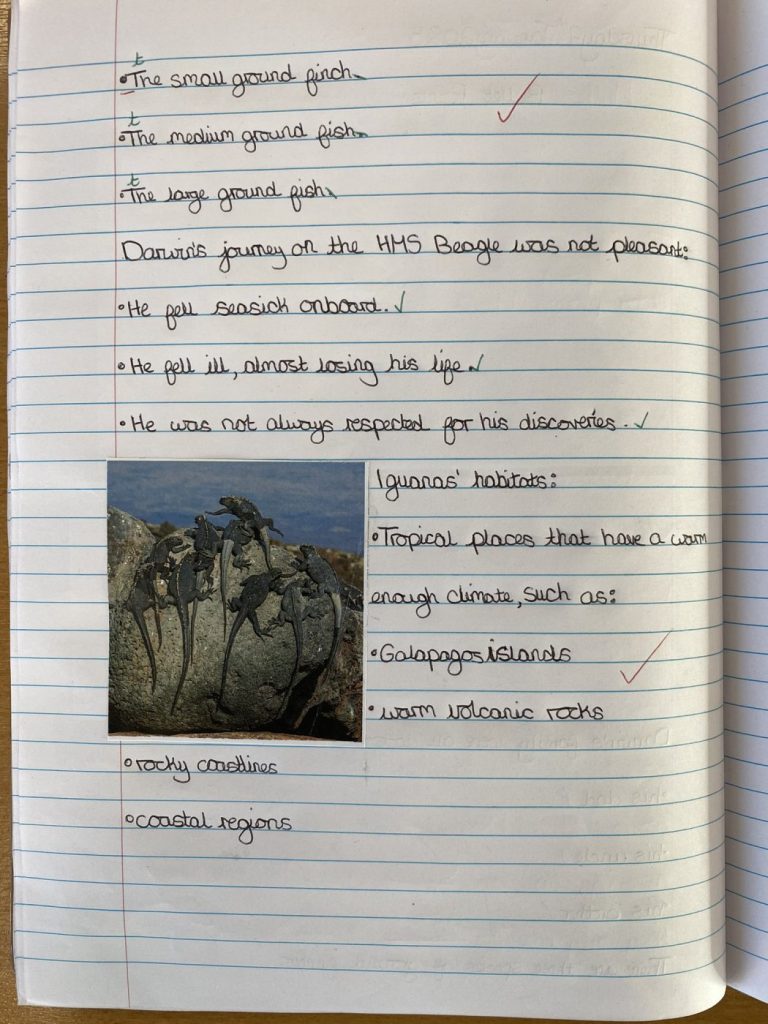 t
•The small ground finch.
t
•The medium ground fish.
t
•The large ground fish.
Darwin's journey on the HMS Beagle was not pleasant:
•He fell seasick onboard.
•He fell ill, almost losing his life.
•He was not always respected for his discoveries.
Iguanas' habitats:
•Tropical places that have a warm
enough climate, such as:
•Galapagos islands
•warm volcanic rocks
•rocky coastlines
•coastal regions